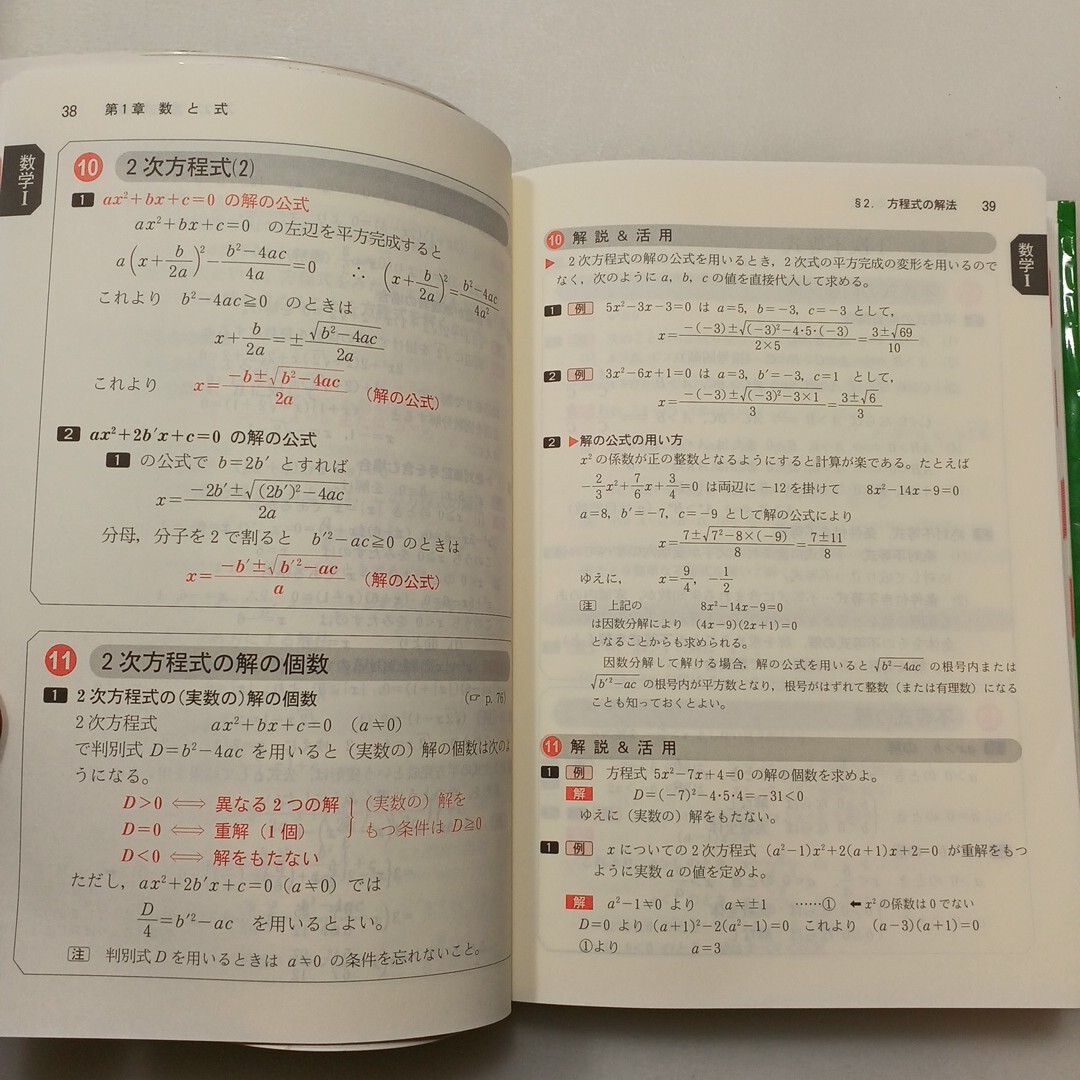 38 第1章 数 と 式
数学Ⅰ
10 2次方程式(2)
1 ax²+bx+c=0 の解の公式
ax²+bx+c=0 の左辺を平方完成すると
a(x+b/2a)²−(b²−4ac)/4a=0 ∴ (x+b/2a)²=(b²−4ac)/4a²
これより b²−4ac≧0 のときは
x+b/2a=±√(b²−4ac)/2a
これより x=(−b±√(b²−4ac))/2a (解の公式)
2 ax²+2b′x+c=0 の解の公式
1 の公式で b=2b′ とすれば
x=(−2b′±√((2b′)²−4ac))/2a
分母,分子を2で割ると b′²−ac≧0 のときは
x=(−b′±√(b′²−ac))/a (解の公式)
11 2次方程式の解の個数
1 2次方程式の(実数の)解の個数 (☞ p.76)
2次方程式 ax²+bx+c=0 (a≠0)
で判別式 D=b²−4ac を用いると(実数の)解の個数は次のよ
うになる。
D>0 ⟺ 異なる2つの解 (実数の)解を
D=0 ⟺ 重解(1個) もつ条件は D≧0
D<0 ⟺ 解をもたない
ただし,ax²+2b′x+c=0(a≠0)では
D/4=b′²−ac を用いるとよい。
注 判別式Dを用いるときは a≠0 の条件を忘れないこと。
§2. 方程式の解法 39
数学Ⅰ
10 解説&活用
▶ 2次方程式の解の公式を用いるとき,2次式の平方完成の変形を用いるので
なく,次のように a, b, c の値を直接代入して求める。
1 例 5x²−3x−3=0 は a=5, b=−3, c=−3 として,
x=(−(−3)±√((−3)²−4·5·(−3)))/(2×5)=(3±√69)/10
2 例 3x²−6x+1=0 は a=3, b′=−3, c=1 として,
x=(−(−3)±√((−3)²−3×1))/3=(3±√6)/3
2 ▶解の公式の用い方
x² の係数が正の整数となるようにすると計算が楽である。たとえば
−2/3x²+7/6x+3/4=0 は両辺に −12 を掛けて 8x²−14x−9=0
a=8, b′=−7, c=−9 として解の公式により
x=(7±√(7²−8×(−9)))/8=(7±11)/8
ゆえに, x=9/4, −1/2
注 上記の 8x²−14x−9=0
は因数分解により (4x−9)(2x+1)=0
となることからも求められる。
因数分解して解ける場合,解の公式を用いると √(b²−4ac) の根号内または
√(b′²−ac) の根号内が平方数となり,根号がはずれて整数(または有理数)になる
ことも知っておくとよい。
11 解説&活用
1 例 方程式 5x²−7x+4=0 の解の個数を求めよ。
解 D=(−7)²−4·5·4=−31<0
ゆえに(実数の)解をもたない。
1 例 xについての2次方程式 (a²−1)x²+2(a+1)x+2=0 が重解をもつ
ように実数 a の値を定めよ。
解 a²−1≠0 より a≠±1 ……① ⬅ x² の係数は0でない
D=0 より (a+1)²−2(a²−1)=0 これより (a−3)(a+1)=0
①より a=3